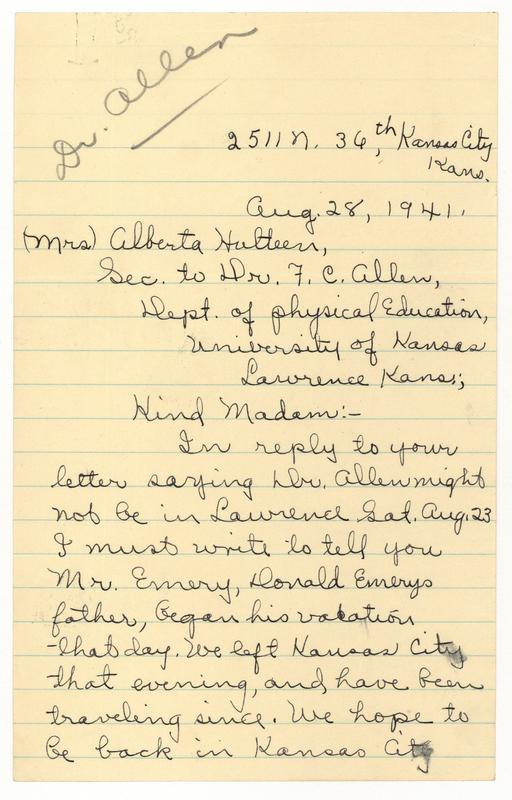 Dr. Allen
2511 N. 36,th Kansas City
Kans.
Aug. 28, 1941.
(Mrs) Alberta Hulteen,
Sec. to Dr. F. C. Allen,
Dept. of physical Education,
University of Kansas
Lawrence Kans.;
Kind Madam:-
In reply to your
letter saying Dr. Allen might
not be in Lawrence Sat. Aug. 23
I must write to tell you
Mr. Emery, Donald Emerys
father, began his vacation
that day. We left Kansas City
that evening, and have been
traveling since. We hope to
be back in Kansas City